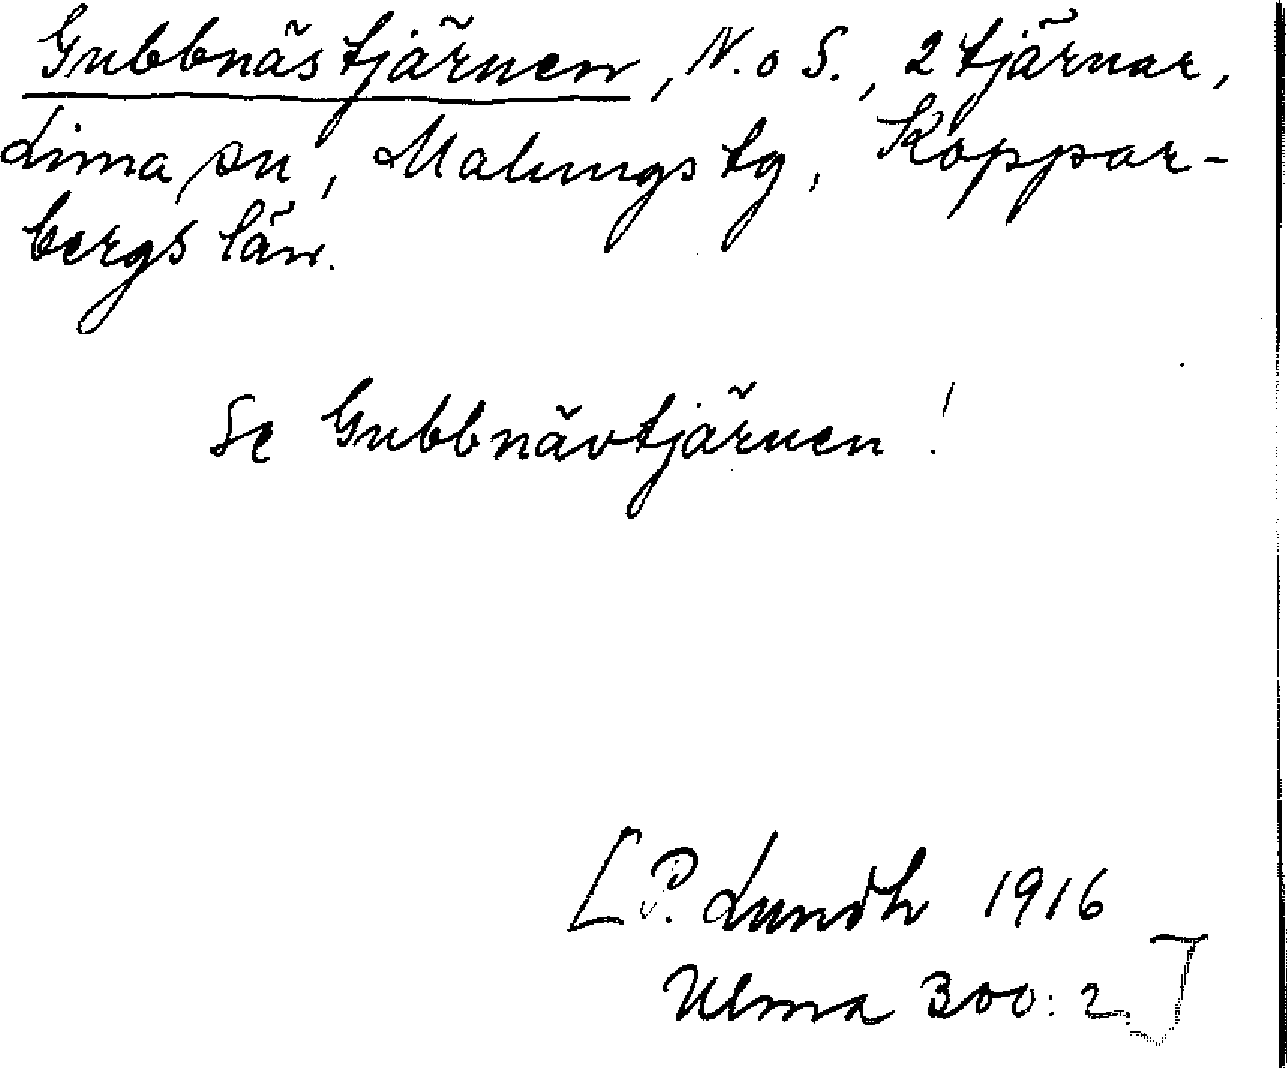 Gubbnästjärnen, N. o S., 2 tjärnar,
Lima sn, Malungs tg, Koppar-
bergs län.
Se Gubbnävtjärnen!
[P. Lundh 1916
Ulma 300:2.]